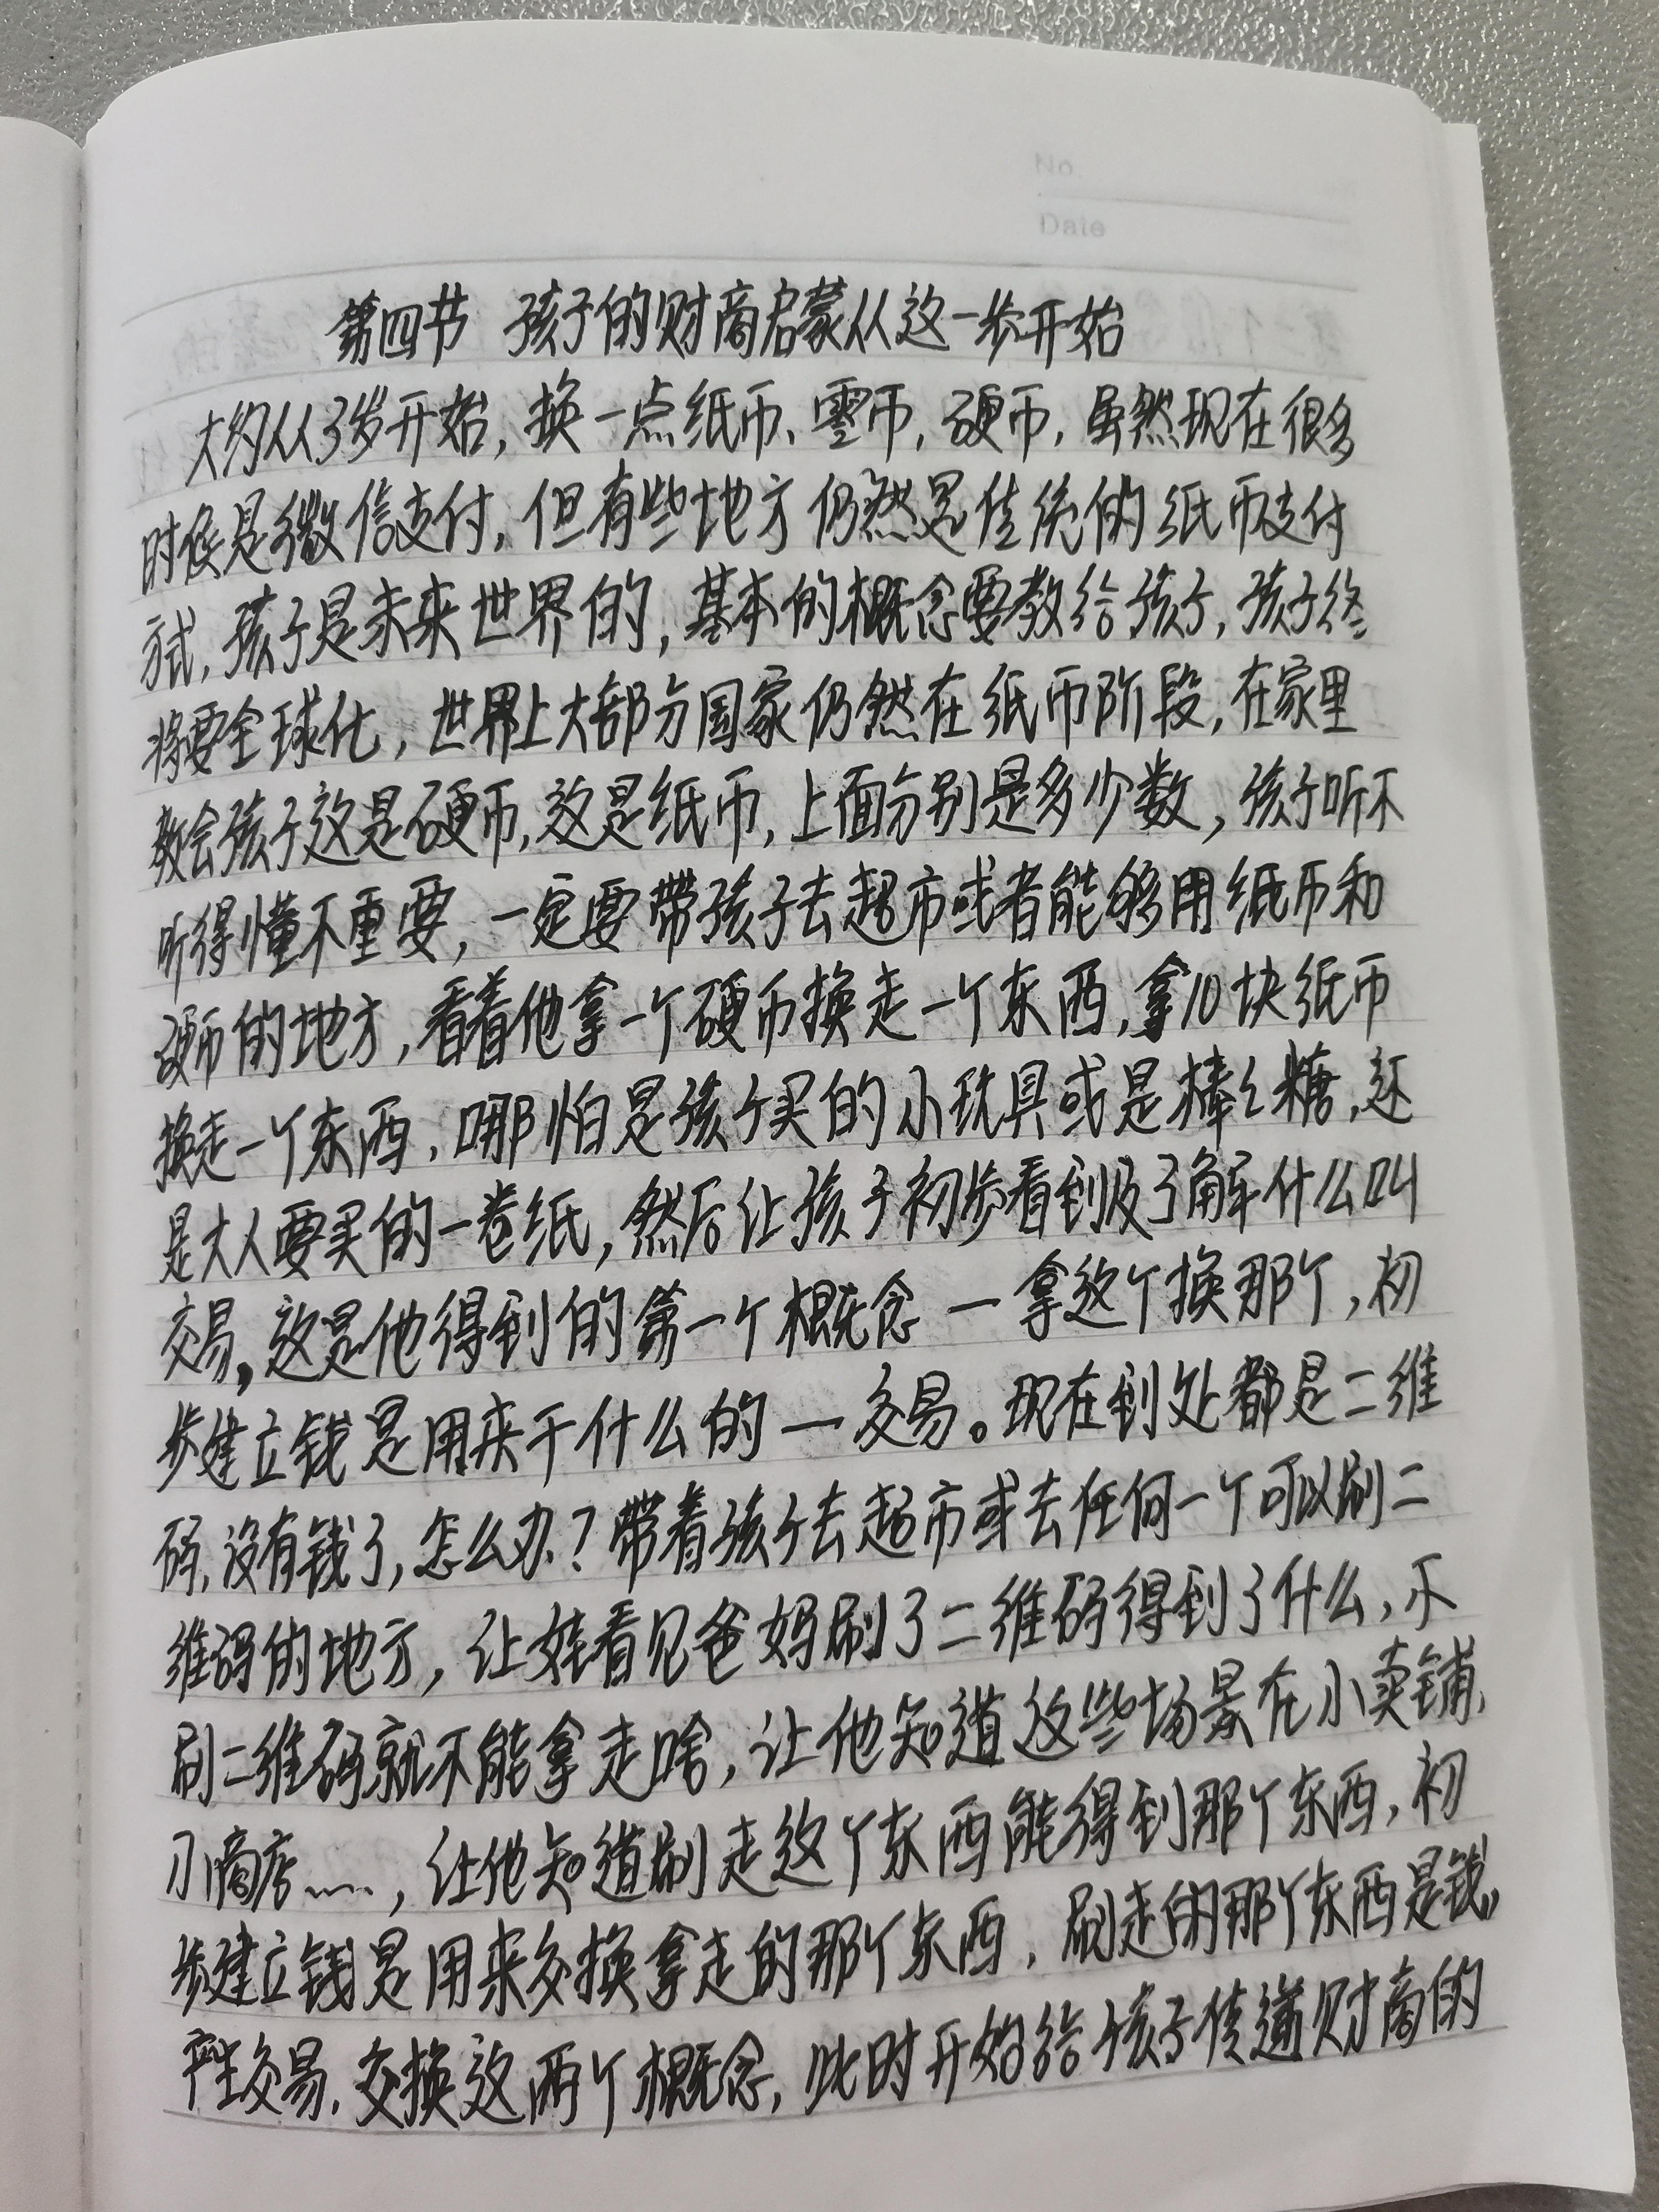 No.
Date
第四节 孩子的财商启蒙从这一步开始
大约从3岁开始,换一点纸币、零币,硬币,虽然现在很多
时候是微信支付,但有些地方仍然是传统的纸币支付
方式,孩子是未来世界的,基本的概念要教给孩子,孩子终
将要全球化,世界上大部分国家仍然在纸币阶段,在家里
教会孩子这是硬币,这是纸币,上面分别是多少数,孩子听不
听得懂不重要,一定要带孩子去超市或者能够用纸币和
硬币的地方,看着他拿一个硬币换走一个东西,拿10块纸币
换走一个东西,哪怕是孩子买的小玩具或是棒棒糖,还
是大人要买的一卷纸,然后让孩子初步看到及了解什么叫
交易,这是他得到的第一个概念一拿这个换那个,初
步建立钱是用来干什么的一交易。现在到处都是二维
码,没有钱了,怎么办?带着孩子去超市或去任何一个可以刷二
维码的地方,让娃看见爸妈刷了二维码得到了什么,不
刷二维码就不能拿走啥,让他知道这些场景在小卖铺、
小商店……,让他知道刷走这个东西能得到那个东西,初
步建立钱是用来交换拿走的那个东西,刷走的那个东西是钱,
产生交易、交换这两个概念,此时开始给孩子传递财商的